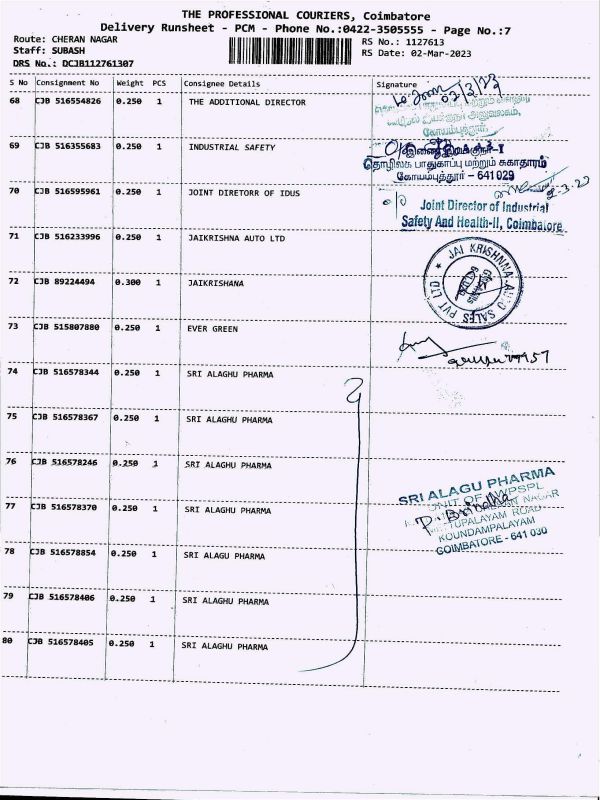 THE PROFESSIONAL COURIERS, Coimbatore
Delivery Runsheet - PCM - Phone No.:0422-3505555 - Page No.:7
Route: CHERAN NAGAR
RS No.: 1127613
Staff: SUBASH
RS Date: 02-Mar-2023
DRS No.: DCJB112761307
S No Consignment No Weight PCS Consignee Details Signature
68 CJB 516554826 0.250 1 THE ADDITIONAL DIRECTOR
02/3/23
கோயம்புத்தூர்
69 CJB 516355683 0.250 1 INDUSTRIAL SAFETY
தொழிலக பாதுகாப்பு மற்றும் சுகாதாரம்
கோயம்புத்தூர் - 641029
70 CJB 516595961 0.250 1 JOINT DIRETORR OF IDUS
Joint Director of Industrial
Safety And Health-II, Coimbatore
71 CJB 516233996 0.250 1 JAIKRISHNA AUTO LTD
JAI KRISHNNA AUTO SALES PVT LTD
72 CJB 89224494 0.300 1 JAIKRISHANA
73 CJB 515807880 0.250 1 EVER GREEN
74 CJB 516578344 0.250 1 SRI ALAGHU PHARMA
75 CJB 516578367 0.250 1 SRI ALAGHU PHARMA
76 CJB 516578246 0.250 1 SRI ALAGHU PHARMA
SRI ALAGU PHARMA
UNIT OF AWPSPL
77 CJB 516578370 0.250 1 SRI ALAGHU PHARMA
NAGAR
P. Brindha
METTUPALAYAM ROAD
KOUNDAMPALAYAM
COIMBATORE - 641 030
78 CJB 516578854 0.250 1 SRI ALAGU PHARMA
79 CJB 516578406 0.250 1 SRI ALAGHU PHARMA
80 CJB 516578405 0.250 1 SRI ALAGHU PHARMA